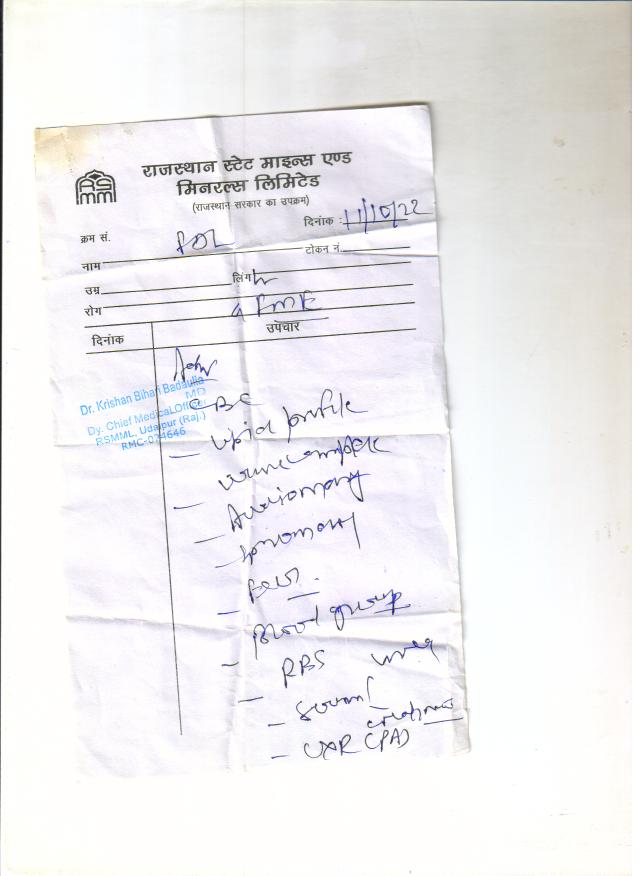 RS
MM
राजस्थान स्टेट माइन्स एण्ड
मिनरल्स लिमिटेड
(राजस्थान सरकार का उपक्रम)
दिनांक : 11/10/22
क्रम सं.
नाम टोकन नं.
उम्र लिंग
रोग
दिनांक उपचार
Dr. Krishan Bihari Badaulia
MD
Dy. Chief Medical Officer
RSMML, Udaipur (Raj.)
RMC-024646
CBC
- Lipid profile
- Urine complete
- Audiometry
- Spirometry
- ECG
- Blood group
- RBS urea
- Serum creatinine
- CXR (PA)